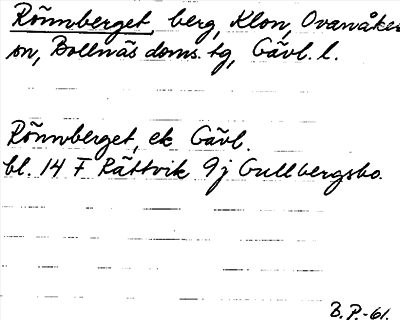 Rönnberget, berg, Klon, Ovanåkers
sn, Bollnäs doms. tg, Gävl. l.
Rönnberget, ek Gävl.
bl. 14 F Rättvik 9j Gullbergsbo.
B.P.-61.